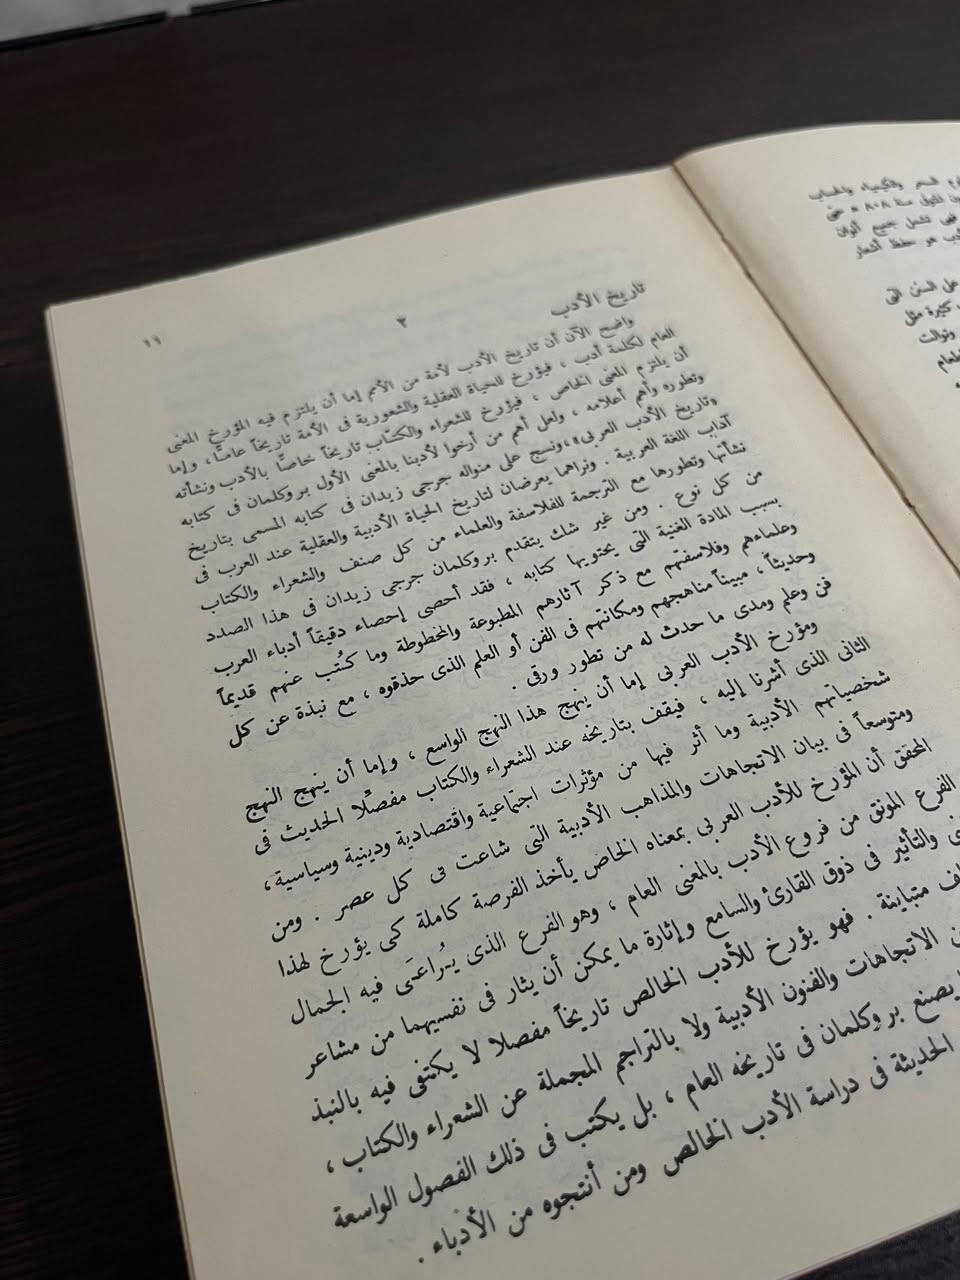 السحر والكيمياء والحساب
سنة ٨٠٨ ه حتى
تشمل جميع ألوان
هو حفظ أشعار
على السنن التى
كثيرة مثل
١١
٢
تاريخ الأدب
واضح الآن أن تاريخ الأدب لأمة من الأمم إما أن يلتزم فيه المؤرخ المعنى
العام لكلمة أدب ، فيؤرخ للحياة العقلية والشعورية فى الأمة تاريخاً عامًّا ، وإما
أن يلتزم المعنى الخاص ، فيؤرخ للشعراء والكتّاب تاريخاً خاصًّا بالأدب ونشأته
وتطوره وأهم أعلامه ، ولعل أهم من أرخوا لأدبنا بالمعنى الأول بروكلمان فى كتابه
«تاريخ الأدب العربى»،ونسج على منواله جرجى زيدان فى كتابه المسمى بتاريخ
آداب اللغة العربية . ونراهما يعرضان لتاريخ الحياة الأدبية والعقلية عند العرب فى
نشأتها وتطورها مع الترجمة للفلاسفة والعلماء من كل صنف والشعراء والكتاب
من كل نوع . ومن غير شك يتقدم بروكلمان جرجى زيدان فى هذا الصدد
بسبب المادة الغنية التى يحتويها كتابه ، فقد أحصى إحصاء دقيقاً أدباء العرب
وعلماءهم وفلاسفتهم مع ذكر آثارهم المطبوعة والمخطوطة وما كُتب عنهم قديماً
وحديثاً ، مبيناً مناهجهم ومكانتهم فى الفن أو العلم الذى حذقوه ، مع نبذة عن كل
فن وعلم ومدى ما حدث له من تطور ورقى .
ومؤرخ الأدب العربى إما أن ينهج هذا النهج الواسع ، وإما أن ينهج النهج
الثانى الذى أشرنا إليه ، فيقف بتاريخه عند الشعراء والكتاب مفصلًا الحديث فى
شخصياتهم الأدبية وما أثر فيها من مؤثرات اجتماعية واقتصادية ودينية وسياسية ،
ومتوسعاً فى بيان الاتجاهات والمذاهب الأدبية التى شاعت فى كل عصر . ومن
المحقق أن المؤرخ للأدب العربى بمعناه الخاص يأخذ الفرصة كاملة كى يؤرخ لهذا
الفرع الموثق من فروع الأدب بالمعنى العام ، وهو الفرع الذى يُراعَى فيه الجمال
والتأثير فى ذوق القارئ والسامع وإثارة ما يمكن أن يثار فى نفسيهما من مشاعر
متباينة . فهو يؤرخ للأدب الخالص تاريخاً مفصلا لا يكتفى فيه بالنبذ
الاتجاهات والفنون الأدبية ولا بالتراجم المجملة عن الشعراء والكتاب ،
يصنع بروكلمان فى تاريخه العام ، بل يكتب فى ذلك الفصول الواسعة
الحديثة فى دراسة الأدب الخالص ومن أنتجوه من الأدباء .